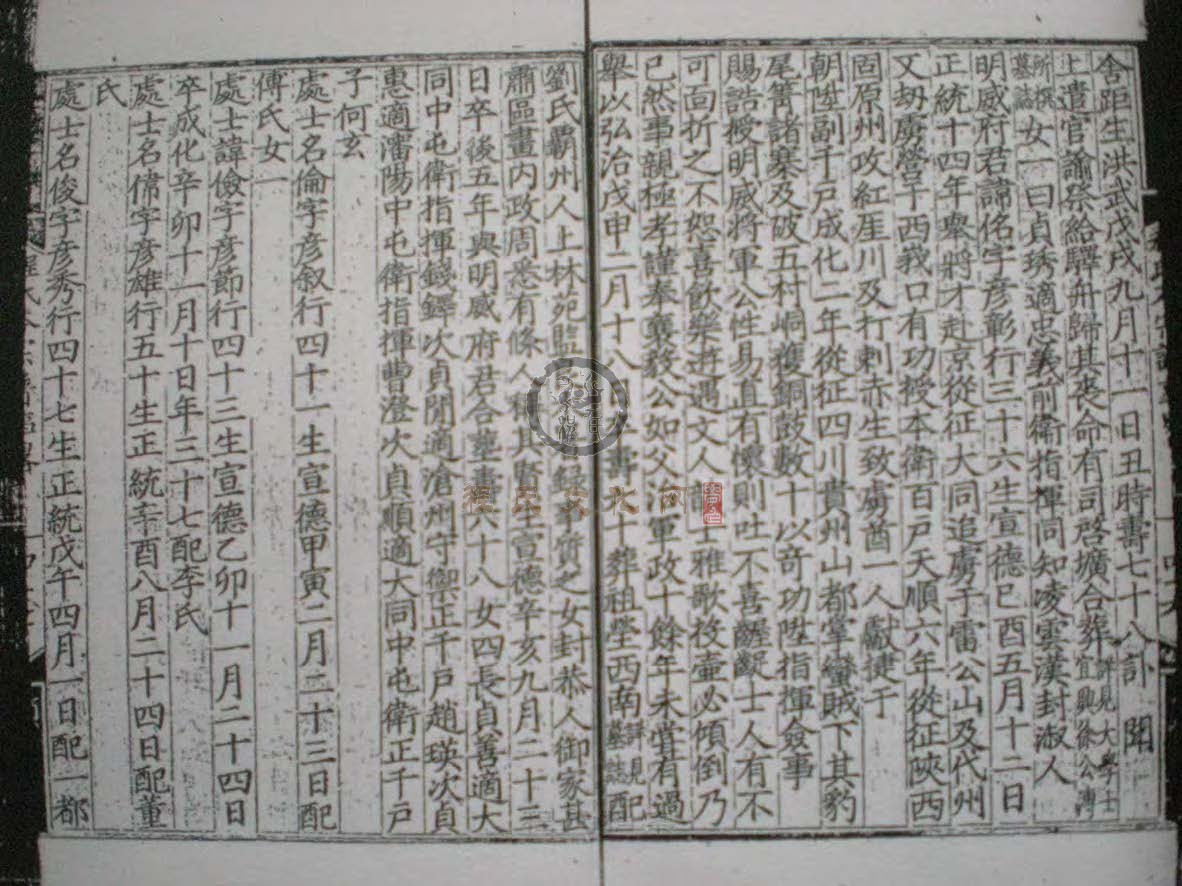 舍距生洪武戊戌九月十一日丑時壽七十八訃 聞
上遣官諭祭給驛舟歸其喪命有司啓壙合葬詳見大學士宜興徐公溥
所撰墓誌女一曰貞琇適忠義前衞指揮同知凌雲漢封淑人
明威府君諱佲字彥彰行三十六生宣德己酉五月十二日
正統十四年舉將才赴京從征大同追虜于雷公山及代州
又刼虜營于西我口有功授本衛百戶天順六年從征陝西
固原州攻紅崖川及打剌赤生致虜酋一人獻捷于
朝陞副千戶成化二年從征四川貴州山都掌蠻賊下其豹
尾箐諸寨及破五村峒獲銅鼓數十以奇功陞指揮僉事
賜誥授明威將軍公性易直有懷則吐不喜齷齪士人有不
可面折之不恕喜飲樂遊遇文人士雅歌投壷必傾倒乃
已然事親極孝謹奉襄毅公如父治軍政十餘年未甞有過
舉以弘治戊申二月十八日壽十葬祖塋西南詳見墓誌配
劉氏霸州人上林苑監錄事質之女封恭人御家甚
肅區畫内政周悉有條人稱其賢生宣德辛亥九月二十三
日卒後五年與明威府君合塟壽六十八女四長貞善適大
同中屯衛指揮錢鐸次貞閉適滄州守禦正千戶趙瑛次貞
惠適瀋陽中屯衛指揮曹澄次貞順適大同中屯衛正千戶
子何玄
處士名倫字彥敘行四十一生宣德甲寅二月二十三日配
傅氏女一
處士諱儉字彥節行四十三生宣德乙卯十一月二十四日
卒成化辛卯十一月十日年三十七配李氏
處士名偉字彥雄行五十生正統辛酉八月二十四日配董
氏
處士名俊字彥秀行四十七生正統戊午四月一日配一都
程氏文化网